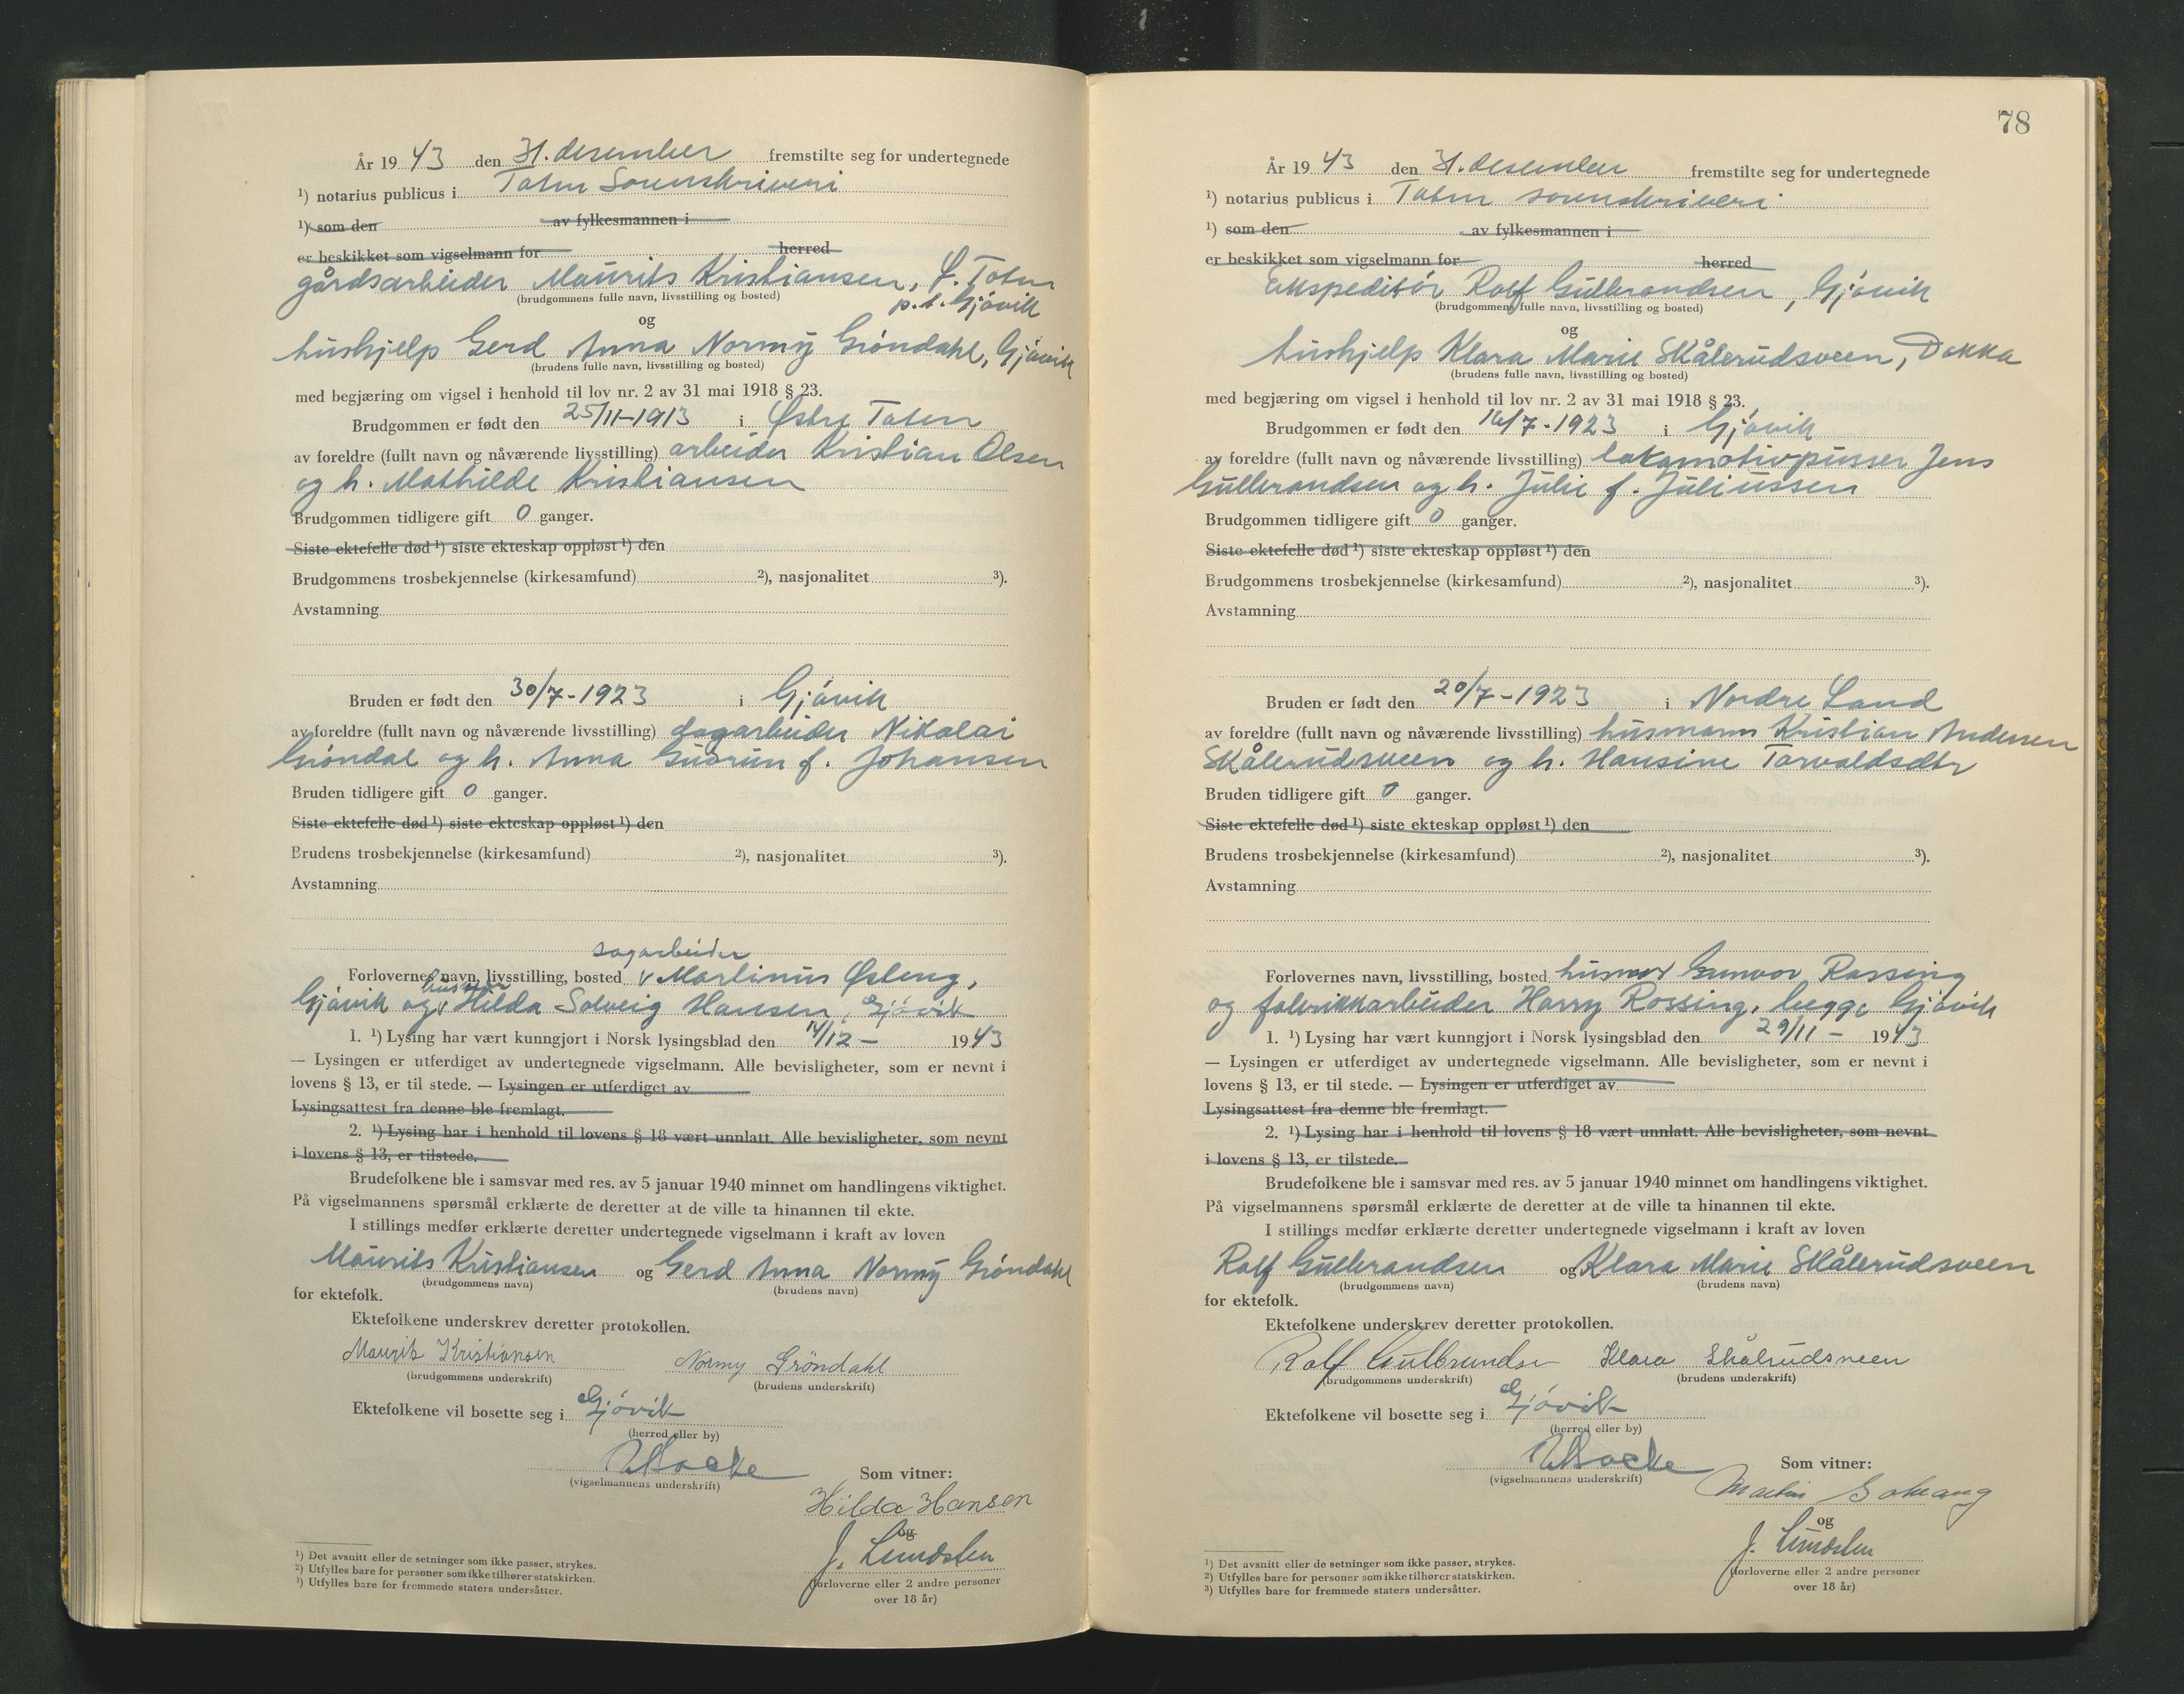 År 19 43 den 31. desember fremstilte seg for undertegnede
¹) notarius publicus i Toten Sorenskriveri
¹) som den av fylkesmannen i
er beskikket som vigselmann for herred
gårdsarbeider Maurits Kristiansen, Ø. Toten
p.t. Gjøvik
(brudgommens fulle navn, livsstilling og bosted)
og
hushjelp Gerd Anna Normy Grøndahl, Gjøvik
(brudens fulle navn, livsstilling og bosted)
med begjæring om vigsel i henhold til lov nr. 2 av 31 mai 1918 § 23.
Brudgommen er født den 25/11-1913 i Østre Toten
av foreldre (fullt navn og nåværende livsstilling) arbeider Kristian Olsen
og h. Mathilde Kristiansen
Brudgommen tidligere gift 0 ganger.
Siste ektefelle død ¹) siste ekteskap oppløst ¹) den
Brudgommens trosbekjennelse (kirkesamfund) ²), nasjonalitet ³).
Avstamning
Bruden er født den 30/7-1923 i Gjøvik
av foreldre (fullt navn og nåværende livsstilling) dagarbeider Nikolai
Grøndal og h. Anna Gudrun f. Johansen
Bruden tidligere gift 0 ganger.
Siste ektefelle død ¹) siste ekteskap oppløst ¹) den
Brudens trosbekjennelse (kirkesamfund) ²), nasjonalitet ³).
Avstamning
sagarbeider
Forlovernes navn, livsstilling, bosted v Martinus Østeng,
husmor
Gjøvik og v Hilda Solveig Hansen, Gjøvik
1. ¹) Lysing har vært kunngjort i Norsk lysingsblad den 14/12 - 1943
— Lysingen er utferdiget av undertegnede vigselmann. Alle bevisligheter, som er nevnt i
lovens § 13, er til stede. — Lysingen er utferdiget av
Lysingsattest fra denne ble fremlagt.
2. ¹) Lysing har i henhold til lovens § 18 vært unnlatt. Alle bevisligheter, som nevnt
i lovens § 13, er tilstede.
Brudefolkene ble i samsvar med res. av 5 januar 1940 minnet om handlingens viktighet.
På vigselmannens spørsmål erklærte de deretter at de ville ta hinannen til ekte.
I stillings medfør erklærte deretter undertegnede vigselmann i kraft av loven
Maurits Kristiansen og Gerd Anna Normy Grøndahl
(brudgommens navn) (brudens navn)
for ektefolk.
Ektefolkene underskrev deretter protokollen.
Maurits Kristiansen Normy Gröndahl
(brudgommens underskrift) (brudens underskrift)
Ektefolkene vil bosette seg i Gjøvik
(herred eller by)
(vigselmannens underskrift)
Som vitner:
Hilda Hansen
og
J. Lundsten
(forloverne eller 2 andre personer
over 18 år)
¹) Det avsnitt eller de setninger som ikke passer, strykes.
²) Utfylles bare for personer som ikke tilhører statskirken.
³) Utfylles bare for fremmede staters undersåtter.
78
År 19 43 den 31. desember fremstilte seg for undertegnede
¹) notarius publicus i Toten sorenskriveri
¹) som den av fylkesmannen i
er beskikket som vigselmann for herred
Ekspeditør Rolf Gulbrandsen, Gjøvik
(brudgommens fulle navn, livsstilling og bosted)
og
hushjelp Klara Marie Skålerudsveen, Dokka
(brudens fulle navn, livsstilling og bosted)
med begjæring om vigsel i henhold til lov nr. 2 av 31 mai 1918 § 23.
Brudgommen er født den 16/7-1923 i Gjøvik
av foreldre (fullt navn og nåværende livsstilling) lokomotivpusser Jens
Gulbrandsen og h. Julie f. Juliussen
Brudgommen tidligere gift 0 ganger.
Siste ektefelle død ¹) siste ekteskap oppløst ¹) den
Brudgommens trosbekjennelse (kirkesamfund) ²), nasjonalitet ³).
Avstamning
Bruden er født den 20/7-1923 i Nordre Land
av foreldre (fullt navn og nåværende livsstilling) husmann Kristian Andersen
Skålerudsveen og h. Hansine Torvaldsdtr
Bruden tidligere gift 0 ganger.
Siste ektefelle død ¹) siste ekteskap oppløst ¹) den
Brudens trosbekjennelse (kirkesamfund) ²), nasjonalitet ³).
Avstamning
Forlovernes navn, livsstilling, bosted husmor Gunvor Rossing
og fabrikkarbeider Harry Rossing, begge Gjøvik
1. ¹) Lysing har vært kunngjort i Norsk lysingsblad den 29/11 - 1943
— Lysingen er utferdiget av undertegnede vigselmann. Alle bevisligheter, som er nevnt i
lovens § 13, er til stede. — Lysingen er utferdiget av
Lysingsattest fra denne ble fremlagt.
2. ¹) Lysing har i henhold til lovens § 18 vært unnlatt. Alle bevisligheter, som nevnt
i lovens § 13, er tilstede.
Brudefolkene ble i samsvar med res. av 5 januar 1940 minnet om handlingens viktighet.
På vigselmannens spørsmål erklærte de deretter at de ville ta hinannen til ekte.
I stillings medfør erklærte deretter undertegnede vigselmann i kraft av loven
Rolf Gulbrandsen og Klara Marie Skålerudsveen
(brudgommens navn) (brudens navn)
for ektefolk.
Ektefolkene underskrev deretter protokollen.
Rolf Gulbrandsen Klara Skålrudsveen
(brudgommens underskrift) (brudens underskrift)
Ektefolkene vil bosette seg i Gjøvik
(herred eller by)
(vigselmannens underskrift)
Som vitner:
og
J. Lundsten
(forloverne eller 2 andre personer
over 18 år)
¹) Det avsnitt eller de setninger som ikke passer, strykes.
²) Utfylles bare for personer som ikke tilhører statskirken.
³) Utfylles bare for fremmede staters undersåtter.